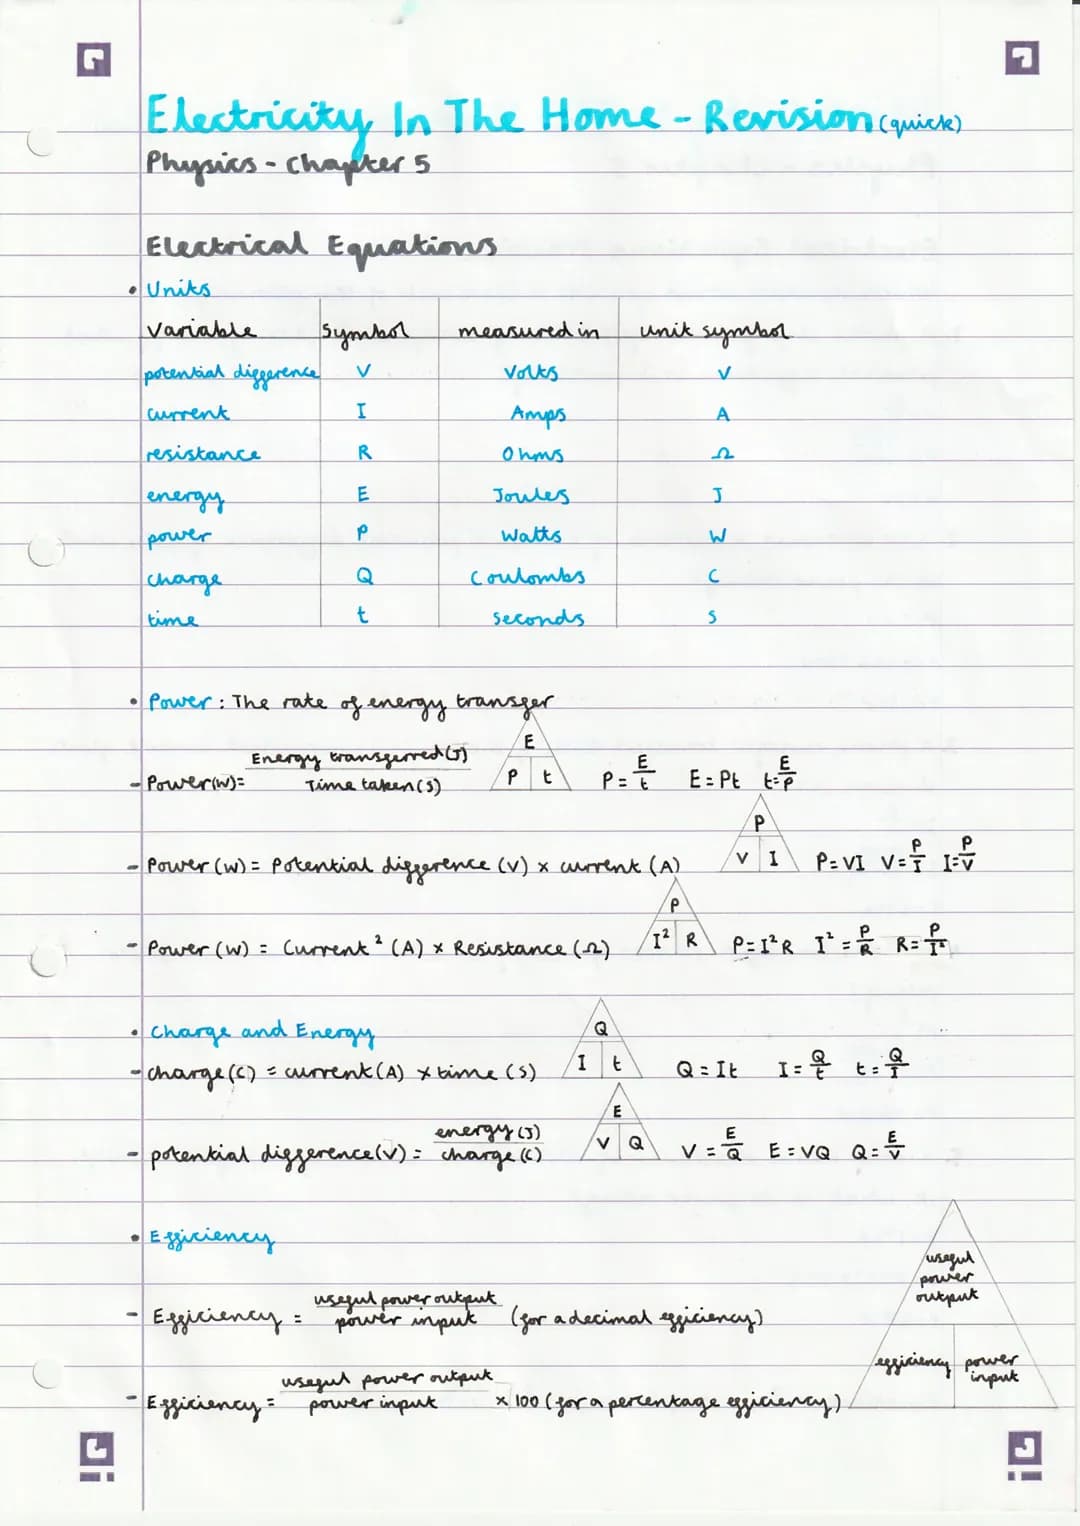 Electricity In The Home - Revision (quick)
Physics - Chapter 5
Electrical Equations
• Units
Variable Symbol measured in unit symbol
potential difference V Volts V
current I Amps A
resistance R Ohms Ω
energy E Joules J
power P Watts W
charge Q Coulombs C
time t seconds s
• Power : The rate of energy transfer
- Power (W) = Energy transferred (J) / Time taken (s) E P t P = E/t E = Pt t = E/P
- Power (W) = Potential difference (V) × current (A) P V I P = VI V = P/I I = P/V
- Power (W) = Current² (A) × Resistance (Ω) P I² R P = I²R I² = P/R R = P/I²
• Charge and Energy
- charge (C) = current (A) × time (s) Q I t Q = It I = Q/t t = Q/I
- potential difference (V) = energy (J) / charge (C) E V Q V = E/Q E = VQ Q = E/V
• Efficiency
- Efficiency = useful power output / power input (for a decimal efficiency)
- Efficiency = useful power output / power input × 100 (for a percentage efficiency)
useful
power
output
efficiency power
input